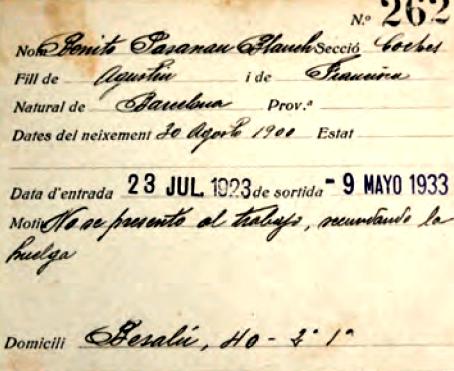 N.º 262
Nom Benito Pasanau Blanch Secció Coches
Fill de Agustín i de Francisca
Natural de Barcelona Prov.ª
Dates del neixement 20 Agosto 1900 Estat
Data d'entrada 23 JUL. 1923 de sortida - 9 MAYO 1933
Motiu No se presento al trabajo, secundando la
huelga
Domicili Besalú, 40 - 2º 1ª